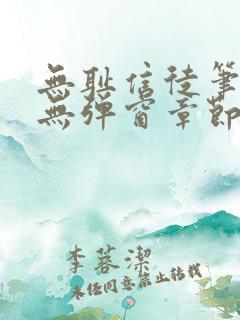 無耻信徒筆
無彈窗章節
李蓉潔
未经同意禁止转载